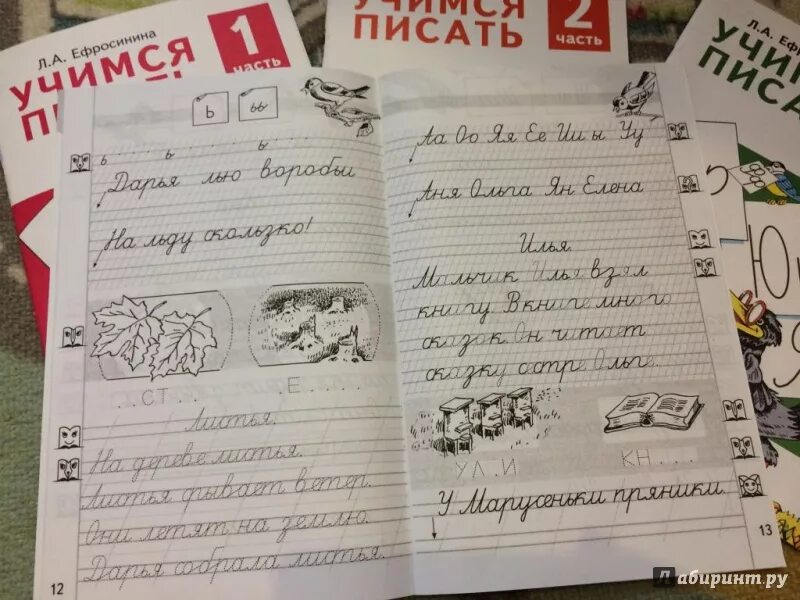 Л.А. Ефросинина
УЧИМСЯ
1
часть
УЧИМСЯ
ПИСАТЬ
2
часть
Л.А. Ефросинина
УЧИМСЯ
ПИСАТЬ
ь ьь
ь ь ь
Дарья лью воробьи
На льду скользко!
. . СТ . . . Е . . . .
Листья.
На дереве листья.
Листья срывает ветер.
Они летят на землю.
Дарья собрала листья.
12
Аа Оо Яя Ее Ии ы Уу
Аня Ольга Ян Елена
Илья.
Мальчик Илья взял
книгу. В книге много
сказок. Он читает
сказку сестре Ольге.
УЛ . И КН . . .
У Марусеньки пряники.
13
Лабиринт.ру